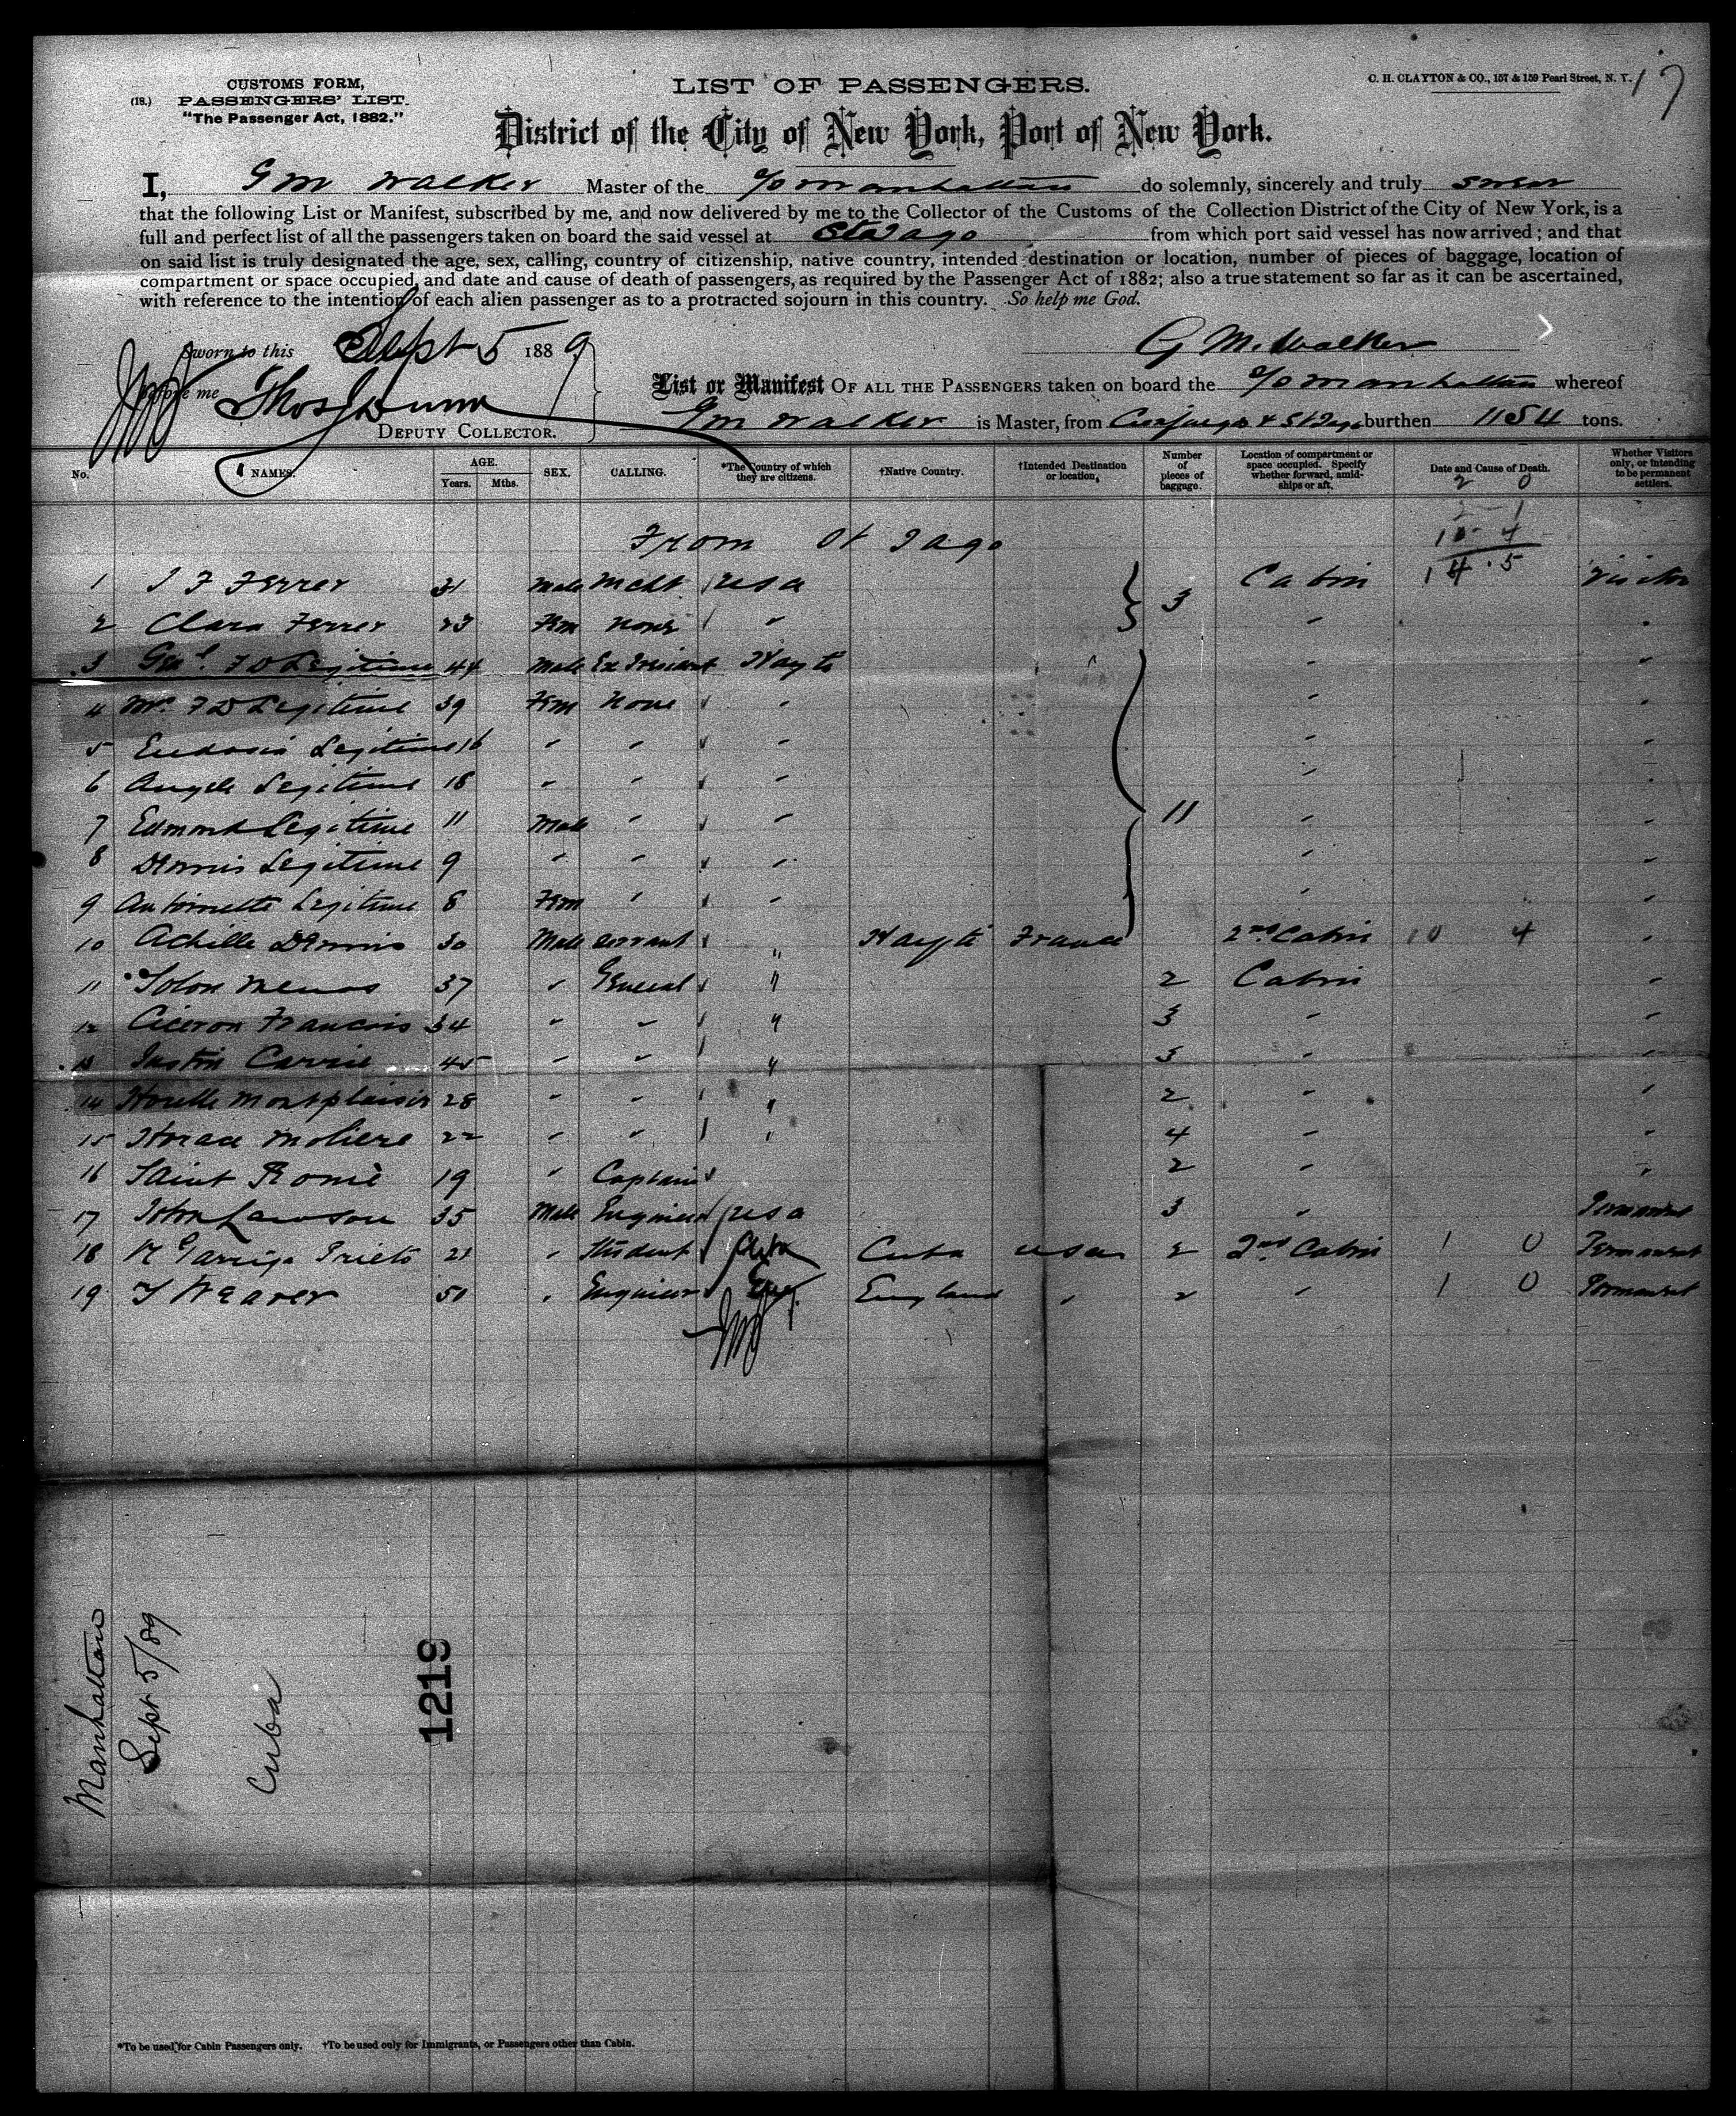 CUSTOMS FORM,
(18.) PASSENGERS' LIST.
"The Passenger Act, 1882."
LIST OF PASSENGERS.
C. H. CLAYTON & CO., 157 & 159 Pearl Street, N. Y.
17
District of the City of New York, Port of New York.
I, G M Walker Master of the S/S Manhattan do solemnly, sincerely and truly swear
that the following List or Manifest, subscribed by me, and now delivered by me to the Collector of the Customs of the Collection District of the City of New York, is a
full and perfect list of all the passengers taken on board the said vessel at St Iago from which port said vessel has now arrived; and that
on said list is truly designated the age, sex, calling, country of citizenship, native country, intended destination or location, number of pieces of baggage, location of
compartment or space occupied, and date and cause of death of passengers, as required by the Passenger Act of 1882; also a true statement so far as it can be ascertained,
with reference to the intention of each alien passenger as to a protracted sojourn in this country. So help me God.
Sworn to this Sept 5 1889
G M. Walker
before me Thos J Dunn
DEPUTY COLLECTOR.
List or Manifest OF ALL THE PASSENGERS taken on board the S/S Manhattan whereof
G M Walker is Master, from Cienfuegos & St Iago burthen 1154 tons.
No. NAMES. AGE. Years. Mths. SEX. CALLING. *The Country of which they are citizens. †Native Country. †Intended Destination or location, Number of pieces of baggage. Location of compartment or space occupied. Specify whether forward, amidships or aft. Date and Cause of Death. Whether Visitors only, or intending to be permanent settlers.
2 0
2 - 1
10 - 4
14 . 5
From St Iago
1 J F Ferrer 31 Male Mcht USA 3 Cabin Visitor
2 Clara Ferrer 23 Fem None " " "
3 Genl. F D Legitime 44 Male Ex President Hayti " "
4 Mrs F D Legitime 39 Fem None " " "
5 Eudosia Legitime 16 " " " " "
6 Angele Legitime 18 " " " " "
7 Edmond Legitime 11 Male " " 11 " "
8 Dennis Legitime 9 " " " " "
9 Antoinette Legitime 8 Fem " " " "
10 Achille Dennis 30 Male Servant " Hayti France 2nd Cabin 10 4 "
11 Solon Menos 37 " General " 2 Cabin "
12 Ciceron Francois 34 " " " 3 " "
13 Justin Carrie 45 " " " 3 " "
14 Horelle Montplaisir 28 " " " 2 " "
15 Horace Moliere 22 " " " 4 " "
16 Saint Romè 19 " Captain 2 " "
17 John Lawson 35 Male Engineer USA 3 " Permanent
18 R Garriga Prieto 21 " Student Cuba Cuba USA 2 2nd Cabin 1 0 Permanent
19 T Weaver 50 " Engineer Eng. England " 2 " 1 0 Permanent
Manhattan
Sept 5/89
Cuba
1219
*To be used for Cabin Passengers only. †To be used only for Immigrants, or Passengers other than Cabin.